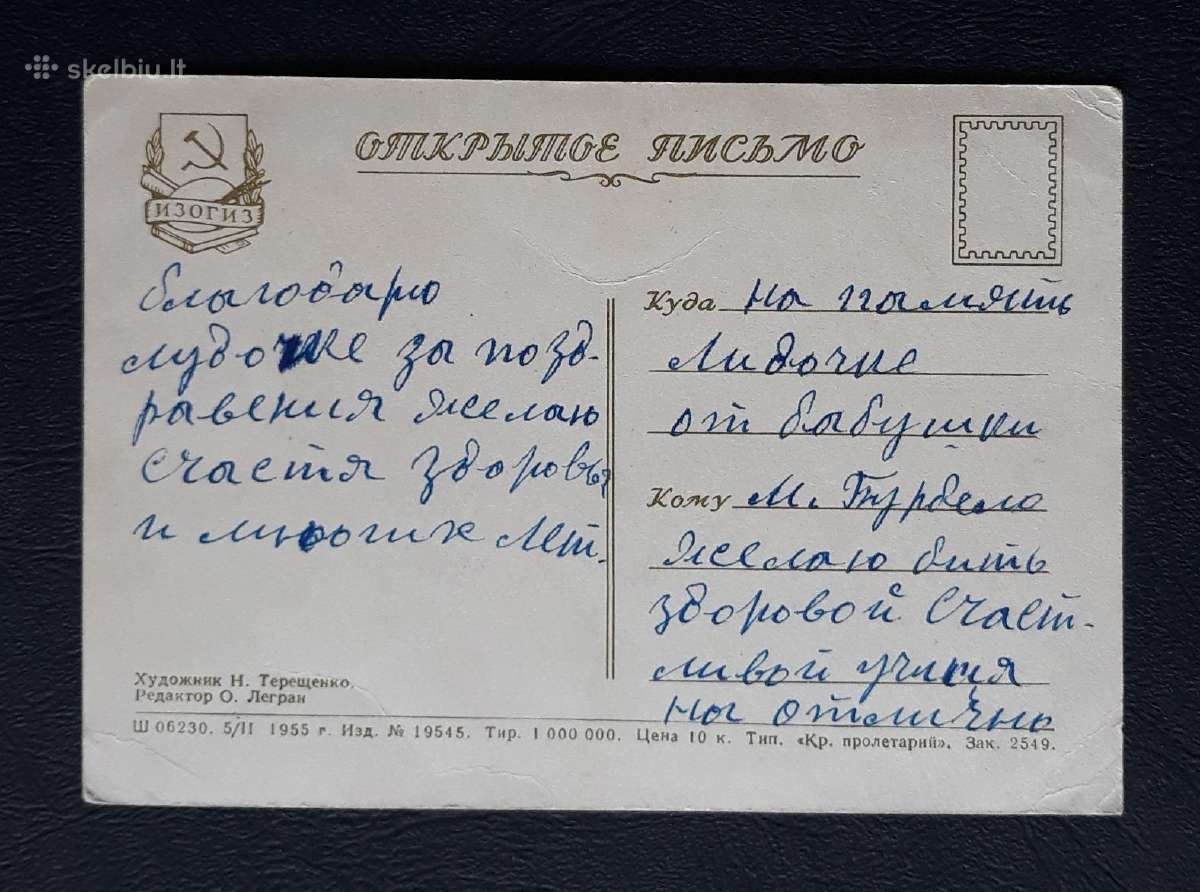 skelbiu.lt
ОТКРЫТОЕ ПИСЬМО
ИЗОГИЗ
благодарю
лудочке за позд-
равения желаю
счастя здоровья
и многих лет.
Куда на память
Лидочке
от бабушки
Кому М. Бурбело
желаю бить
здоровой счаст-
ливой учися
на отлично
Художник Н. Терещенко
Редактор О. Легран
Ш 06230. 5/II 1955 г. Изд. № 19545. Тир. 1 000 000. Цена 10 к. Тип. «Кр. пролетарий». Зак. 2549.